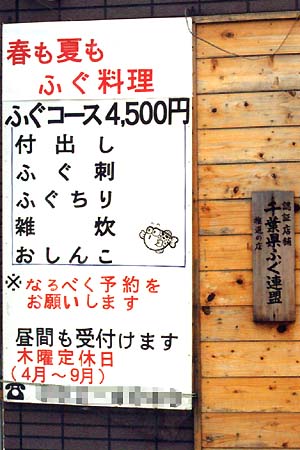 春も夏も
ふぐ料理
ふぐコース4,500円
付出し
ふぐ刺
ふぐちり
雑炊
おしんこ
※なるべく予約を
お願いします
昼間も受付けます
木曜定休日
(4月〜9月)
☎
認証店舗
千葉県ふぐ連盟
推選の店